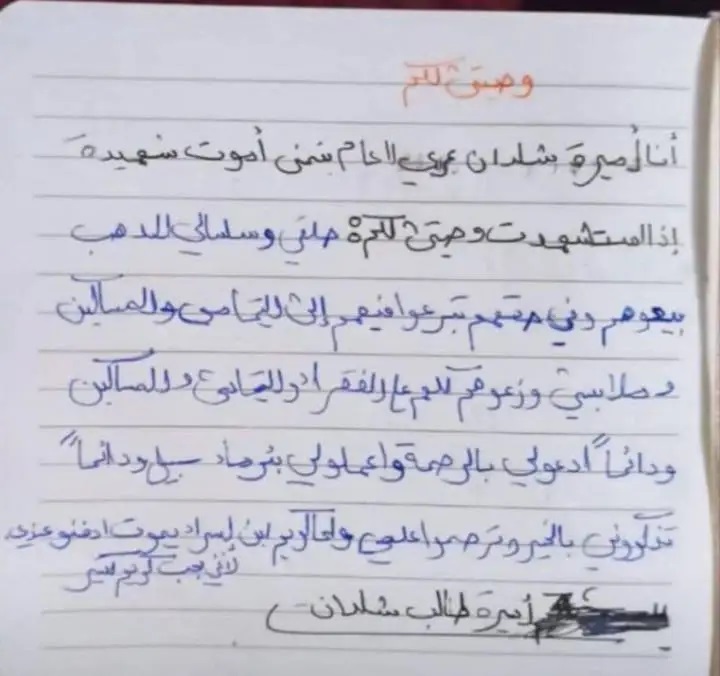 وصيتي لكم
أنا أميرة شلدان عمري 11 عام بتمنى أموت شهيدة
إذا استشهدت وصيتي لكم حلقي وسلسالي الدهب
بيعوهم وفي حقهم تبرعوا فيهم إلى اليتامى والمساكين
وملابسي وزعوهم كلهم على الفقراء واليتامى والمساكين
ودائماً ادعولي بالرحمة واعملولي بئر ماء سبيل ودائماً
تذكروني بالخير وترحموا علي ولما كريم ابن إسراء يموت ادفنوه عندي
لأني بحب كريم كتير
أميرة طالب شلدان